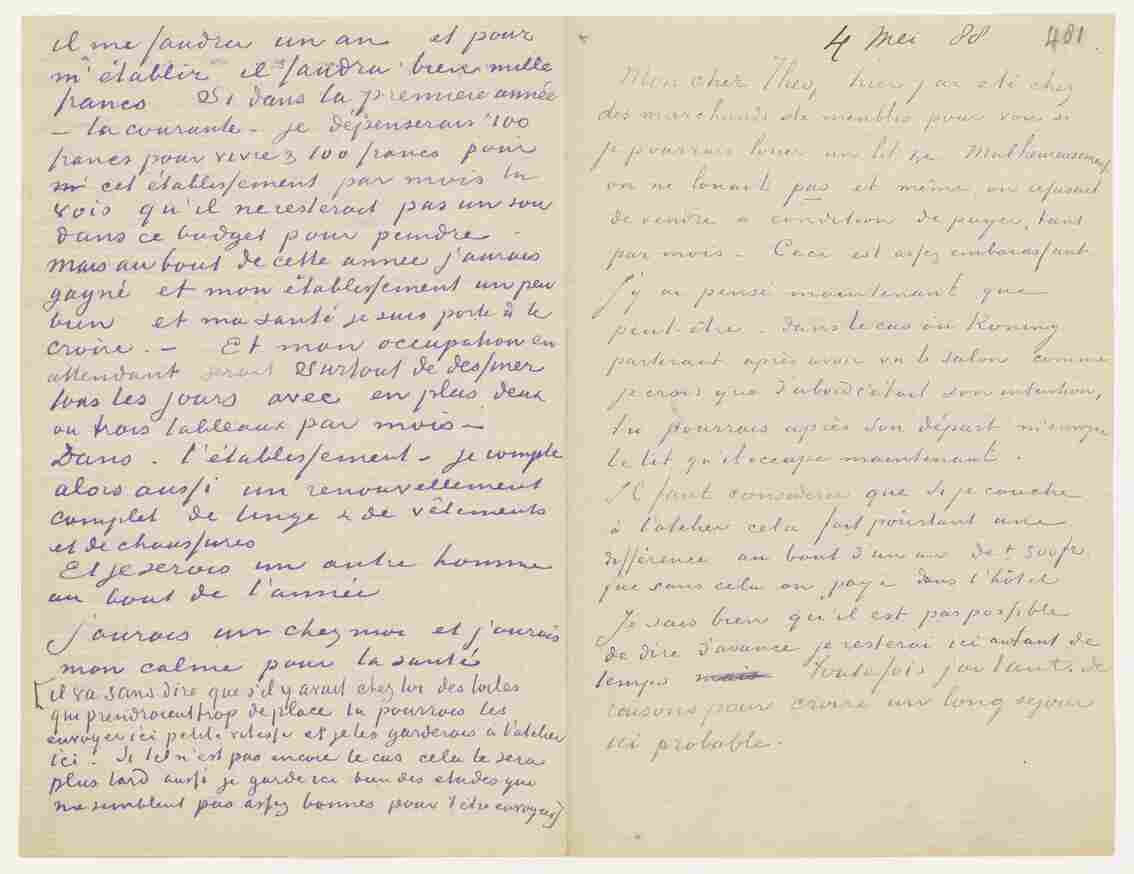 il me faudra un an et pour
m'établir il faudra bien mille
francs Si dans la première année
– la courante – je dépenserais 100
francs pour vivre & 100 francs pour
cet établissement par mois tu
vois qu'il ne resterait pas un sou
dans ce budget pour peindre –
Mais au bout de cette année j'aurais
gagné et mon établissement un peu
bien et ma santé je suis porté à le
croire. – Et mon occupation en
attendant serait surtout de dessiner
tous les jours avec en plus deux
ou trois tableaux par mois –
Dans – l'établissement – je compte
alors aussi un renouvellement
complet de linge & de vêtements
et de chaussures
Et je serais un autre homme
au bout de l'année
j'aurais un chez moi et j'aurais
mon calme pour la santé
[il va sans dire que s'il y avait chez toi des toiles
qui prendraient trop de place tu pourrais les
envoyer ici petite vitesse et je les garderais à l'atelier
ici. Si tel n'est pas encore le cas cela le sera
plus tard aussi je garde ici bien des etudes que
me semblent pas assez bonnes pour t'être envoyées]
4 Mei 88 481.
Mon cher Theo, hier j'ai été chez
des marchands de meubles pour voir si
je pourrais louer un lit &c Malheureusement
on ne louait pas et même on refusait
de vendre a condition de payer tant
par mois – Ceci est assez embarassant
J'y ai pensé maintenant que
peut-être – dans le cas où Koning
partirait après avoir vu le salon comme
je crois que d'abord c'était son intention,
tu pourrais après son départ m'envoyer
le lit qu'il occupe maintenant.
Il faut considerer que si je couche
à l'atelier cela fait pourtant une
différence au bout d'un an de + 300 fr
que sans cela on paye dans l'hôtel
Je sais bien qu'il est pas possible
de dire d'avance je resterai ici autant de
temps mais Toutefois j'ai tant de
raisons pour croire un long sejour
ici probable.